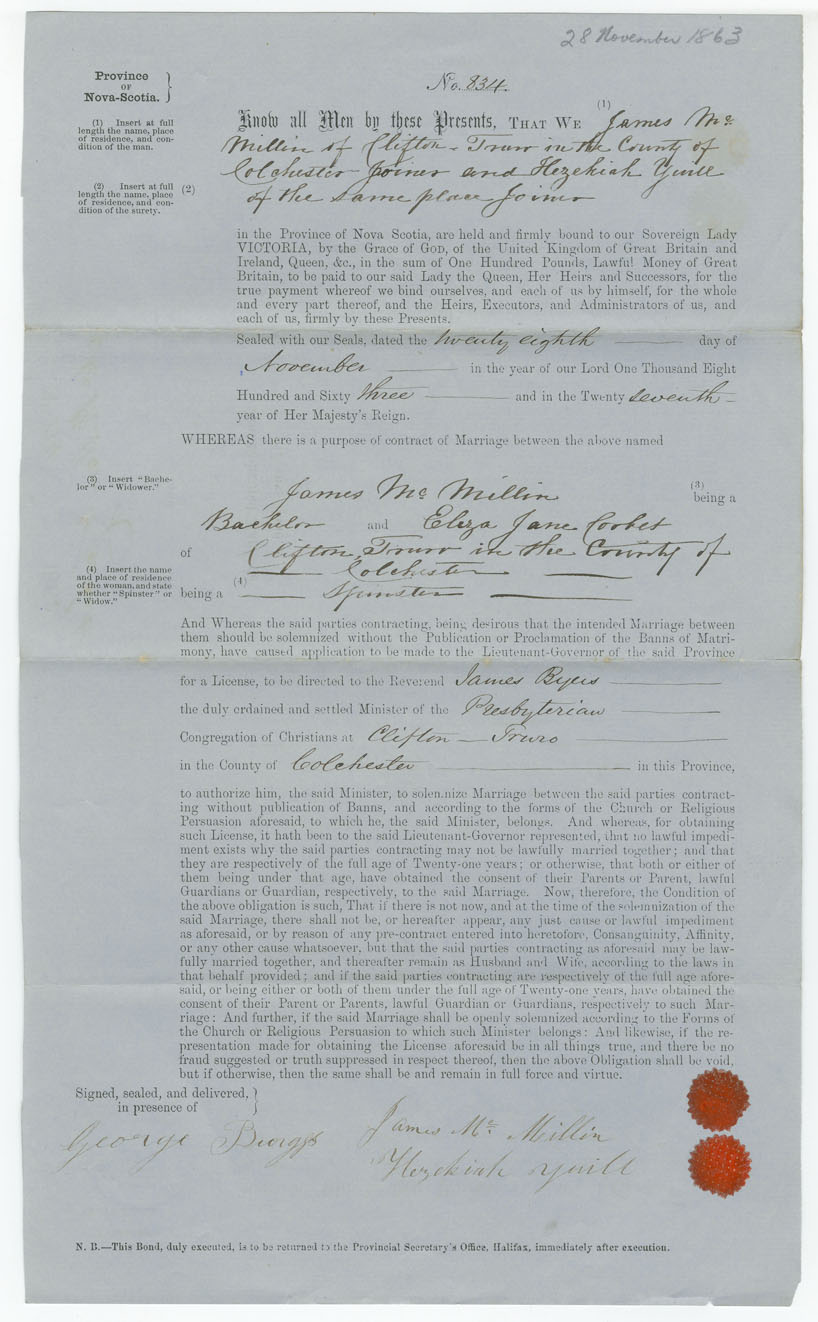 28 November 1863
Province
OF
Nova-Scotia.
No. 834.
(1) Insert at full
length the name, place
of residence, and con-
dition of the man.
(1)
Know all Men by these Presents, THAT WE James Mc
Millin of Clifton - Truro in the County of
Colchester Joiner and Hezekiah Yuill
of the same place Joiner
(2) Insert at full
length the name, place
of residence, and con-
dition of the surety.
(2)
in the Province of Nova Scotia, are held and firmly bound to our Sovereign Lady
VICTORIA, by the Grace of GOD, of the United Kingdom of Great Britain and
Ireland, Queen, &c., in the sum of One Hundred Pounds, Lawful Money of Great
Britain, to be paid to our said Lady the Queen, Her Heirs and Successors, for the
true payment whereof we bind ourselves, and each of us by himself, for the whole
and every part thereof, and the Heirs, Executors, and Administrators of us, and
each of us, firmly by these Presents.
Sealed with our Seals, dated the twenty eighth day of
November in the year of our Lord One Thousand Eight
Hundred and Sixty three and in the Twenty seventh
year of Her Majesty's Reign.
WHEREAS there is a purpose of contract of Marriage between the above named
(3) Insert "Bache-
lor" or "Widower."
James Mc Millin
(3)
being a
Bachelor and Eliza Jane Corbet
of Clifton, Truro in the County of
Colchester
(4) Insert the name
and place of residence
of the woman, and state
whether "Spinster" or
"Widow."
(4)
being a Spinster
And Whereas the said parties contracting, being desirous that the intended Marriage between
them should be solemnized without the Publication or Proclamation of the Banns of Matri-
mony, have caused application to be made to the Lieutenant-Governor of the said Province
for a License, to be directed to the Reverend James Byers
the duly ordained and settled Minister of the Presbyterian
Congregation of Christians at Clifton - Truro
in the County of Colchester in this Province,
to authorize him, the said Minister, to solemnize Marriage between the said parties contract-
ing without publication of Banns, and according to the forms of the Church or Religious
Persuasion aforesaid, to which he, the said Minister, belongs. And whereas, for obtaining
such License, it hath been to the said Lieutenant-Governor represented, that no lawful impedi-
ment exists why the said parties contracting may not be lawfully married together; and that
they are respectively of the full age of Twenty-one years; or otherwise, that both or either of
them being under that age, have obtained the consent of their Parents or Parent, lawful
Guardians or Guardian, respectively, to the said Marriage. Now, therefore, the Condition of
the above obligation is such, That if there is not now, and at the time of the solemnization of the
said Marriage, there shall not be, or hereafter appear, any just cause or lawful impediment
as aforesaid, or by reason of any pre-contract entered into heretofore, Consanguinity, Affinity,
or any other cause whatsoever, but that the said parties contracting as aforesaid may be law-
fully married together, and thereafter remain as Husband and Wife, according to the laws in
that behalf provided; and if the said parties contracting are respectively of the full age afore-
said, or being either or both of them under the full age of Twenty-one years, have obtained the
consent of their Parent or Parents, lawful Guardian or Guardians, respectively to such Mar-
riage: And further, if the said Marriage shall be openly solemnized according to the Forms of
the Church or Religious Persuasion to which such Minister belongs: And likewise, if the re-
presentation made for obtaining the License aforesaid be in all things true, and there be no
fraud suggested or truth suppressed in respect thereof, then the above Obligation shall be void,
but if otherwise, then the same shall be and remain in full force and virtue.
Signed, sealed, and delivered,
in presence of
George James Mc Millin
Hezekiah Yuill
N. B.—This Bond, duly executed, is to be returned to the Provincial Secretary's Office, Halifax, immediately after execution.